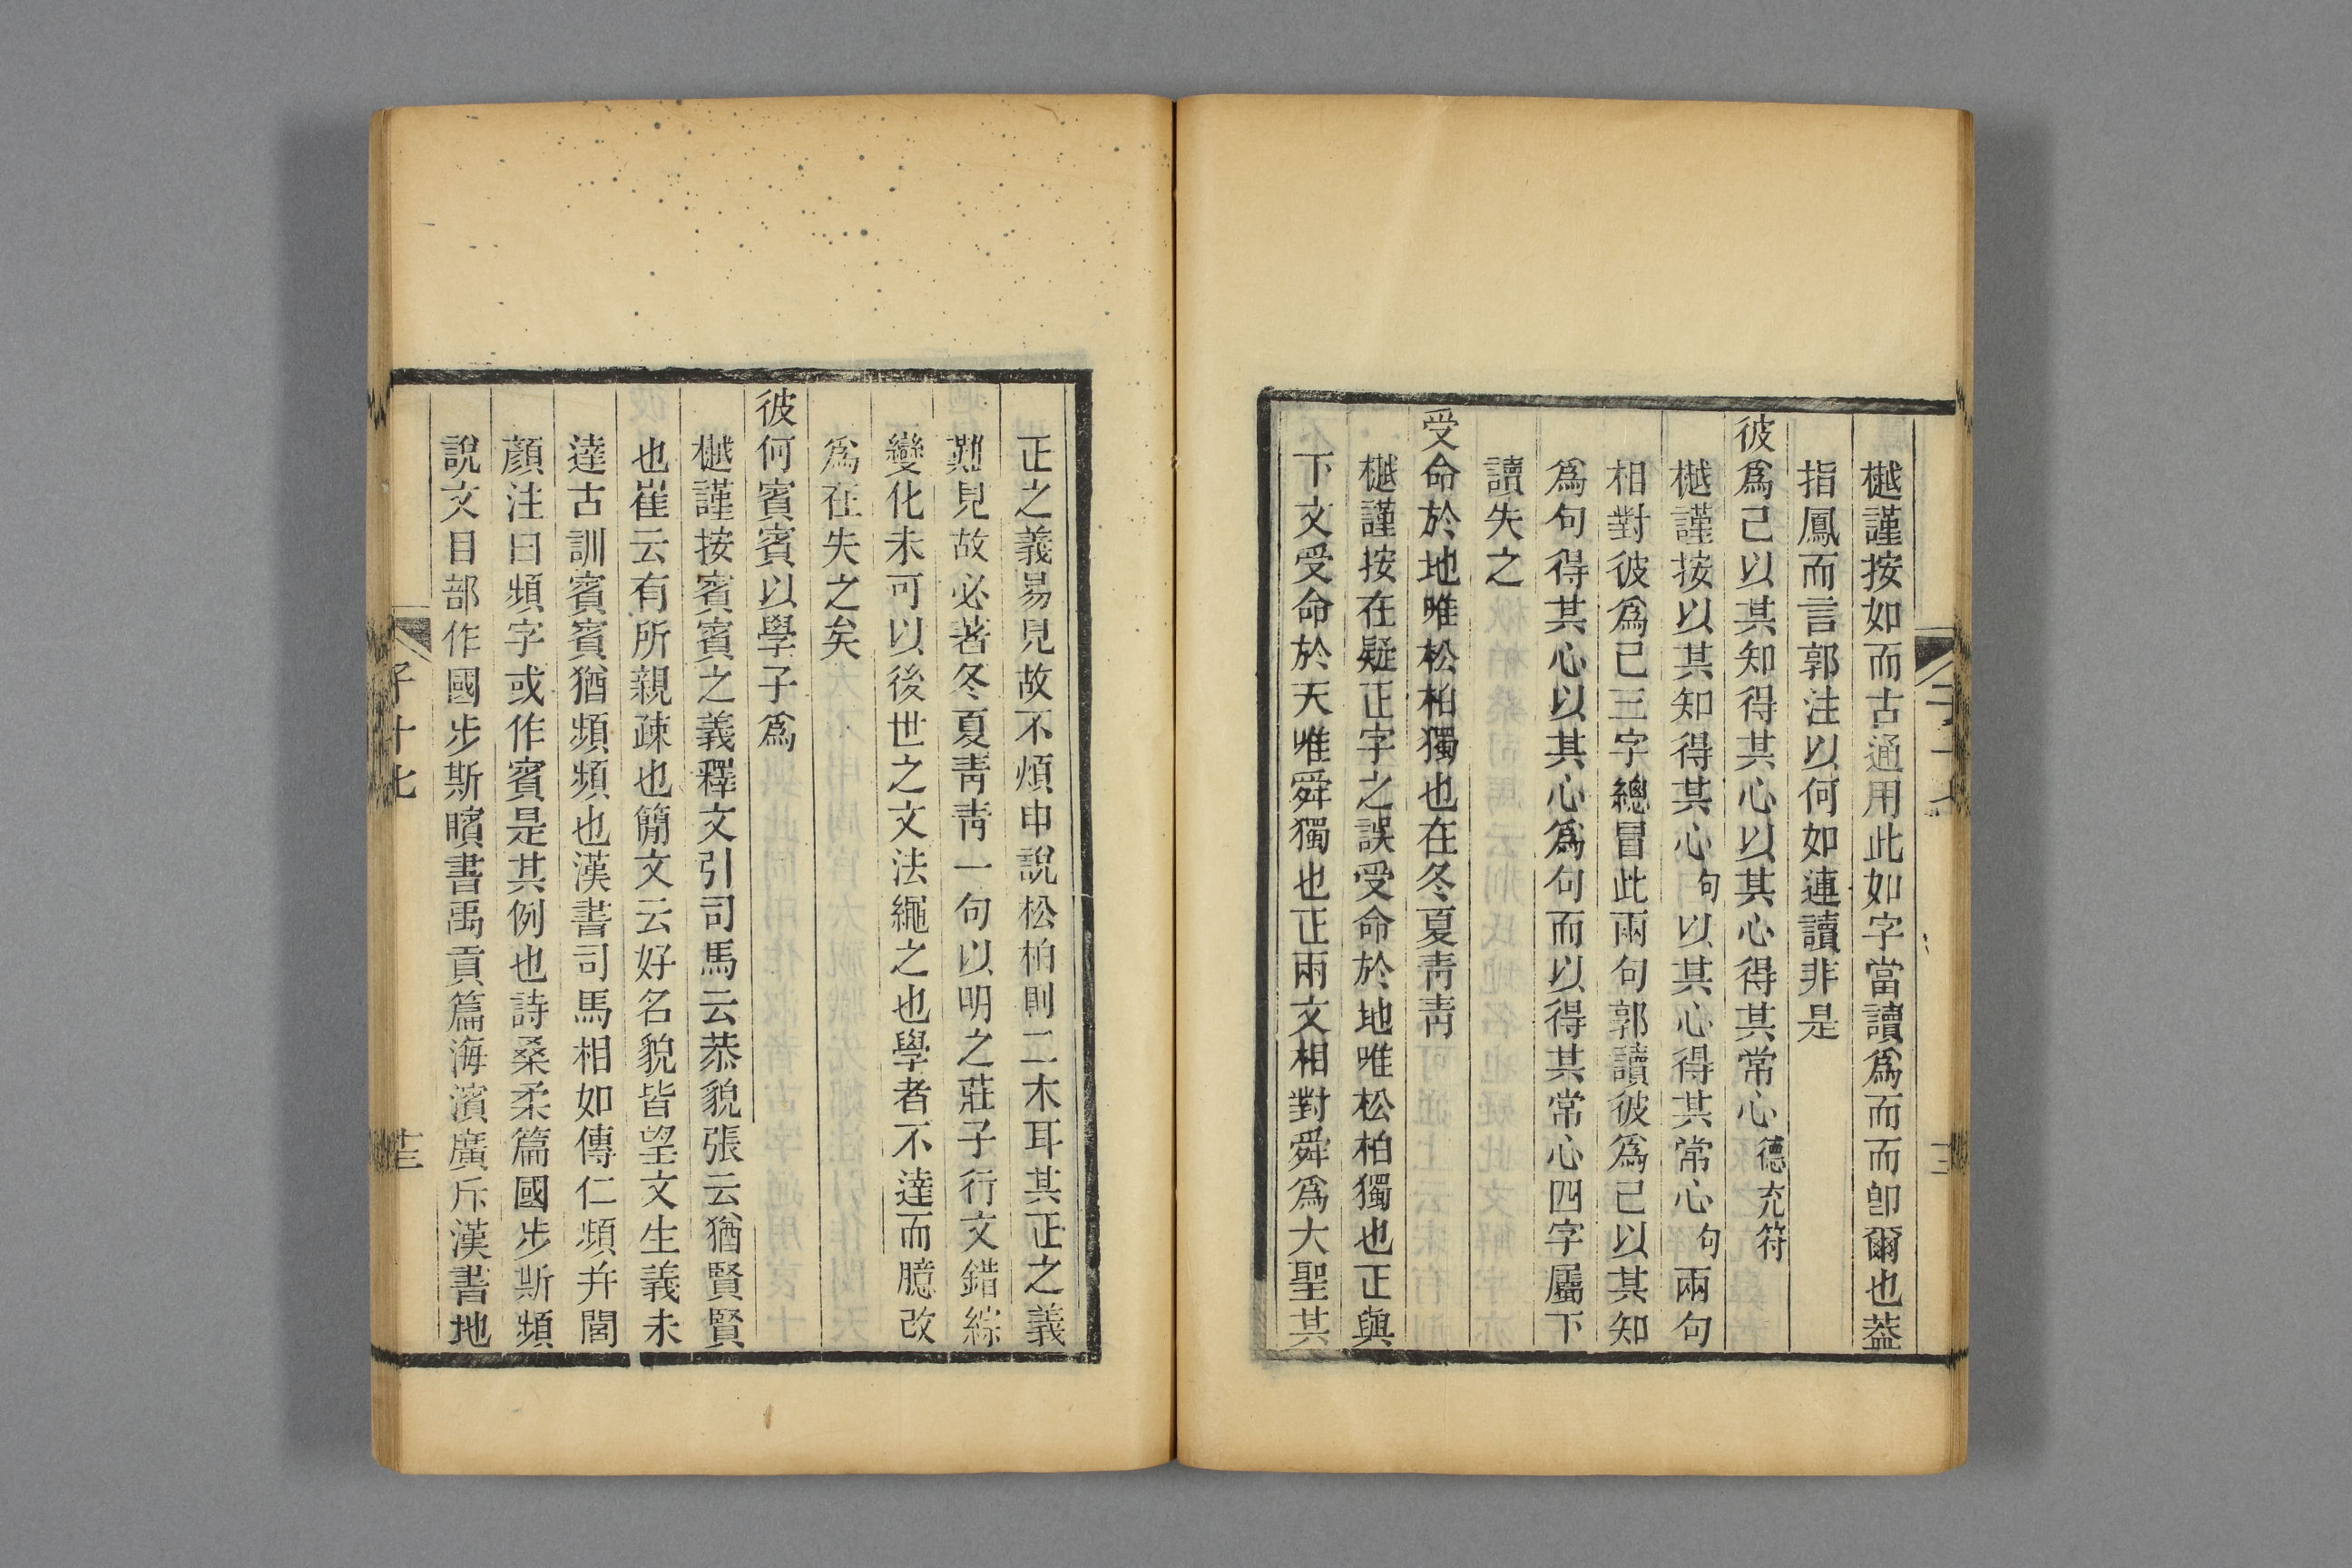 樾謹按如而古通用此如字當讀爲而而卽爾也葢
指鳳而言郭注以何如連讀非是
彼爲己以其知得其心以其心得其常心德充符
樾謹按以其知得其心句以其心得其常心句兩句
相對彼爲己三字總冒此兩句郭讀彼爲己以其知
爲句得其心以其心爲句而以得其常心四字屬下
讀失之
受命於地唯松柏獨也在冬夏靑靑
樾謹按在疑正字之誤受命於地唯松柏獨也正與
下文受命於天唯舜獨也正兩文相對舜爲大聖其
正之義易見故不煩申說松柏則二木耳其正之義
難見故必著冬夏靑靑一句以明之莊子行文錯綜
變化未可以後世之文法繩之也學者不達而臆改
爲在失之矣
彼何賓賓以學子爲
樾謹按賓賓之義釋文引司馬云恭貌張云猶賢賢
也崔云有所親疎也簡文云好名貌皆望文生義未
達古訓賓賓猶頻頻也漢書司馬相如傳仁頻幷閭
顏注曰頻字或作賓是其例也詩桑柔篇國步斯頻
說文目部作國步斯矉書禹貢篇海濱廣斥漢書地
子十七